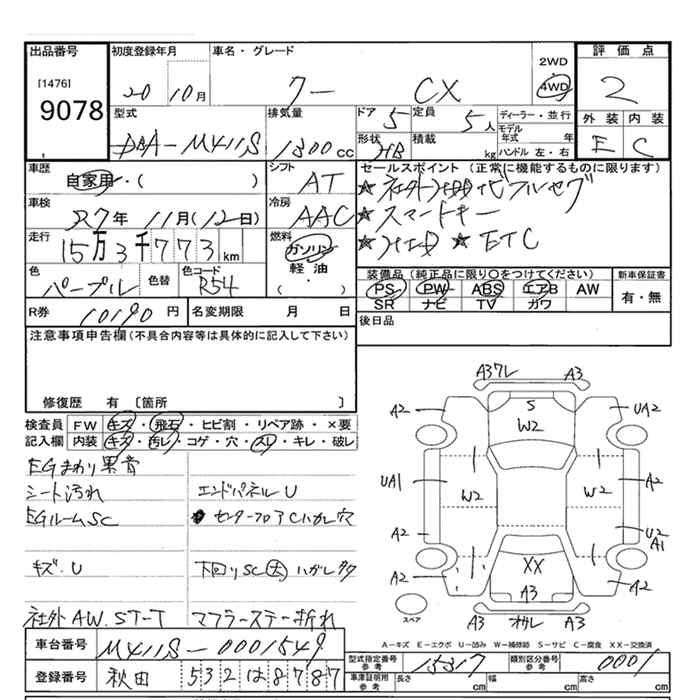 出品番号 初度登録年月 車名・グレード 評価点
[1476]
9078
20 10月 クー CX 2WD 4WD 2
型式 排気量 ドア 5 定員 5人 ディーラー・並行 外装 内装
DBA-M411S 1300cc 形状 HB 積載 kg モデル年式 年 ハンドル 左・右 E C
車歴 自家用・( ) シフト AT セールスポイント (正常に機能するものに限ります)
★社外HDDナビフルセグ
車検 R7年 11月(12日) 冷房 AAC ★スマートキー
走行 15万3千773km 燃料 ガソリン 軽油 ( ・ ) ★ ★ETC
色 パープル 色替 色コード R54 装備品(純正品に限り〇をつけてください) 新車保証書
PS PW ABS エアB AW 有・無
SR ナビ TV ガワ
R券 10190円 名変期限 月 日 後日品
注意事項申告欄(不具合内容等は具体的に記入して下さい)
修復歴 有 〔箇所 〕
検査員 FW キズ・飛石・ヒビ割・リペア跡・×要
記入欄 内装 キズ・汚レ・コゲ・穴・スレ・キレ・破レ
EGまわり異音
シート汚れ エンドパネルU
EGルームSC センターフロアCハガレ穴
キズ・U 下回りSC(大)ハガレ多
社外AW.ST-T マフラーステー折れ
A3ワレ A3
A2 S UA2
W2
UA1 W2 W2 A2
A2 U2 A1
A2 XX A2
A3
スペア A3 オサレ A3
A-キズ E-エクボ U-凹み W-補修跡 S-サビ C-腐食 XX-交換済
車台番号 M411S-0001549
型式指定番号 参考 15317 類別区分番号 参考 0001
登録番号 秋田 532 は 8787
車庫証明用 参考 長さ cm 幅 cm 高さ cm